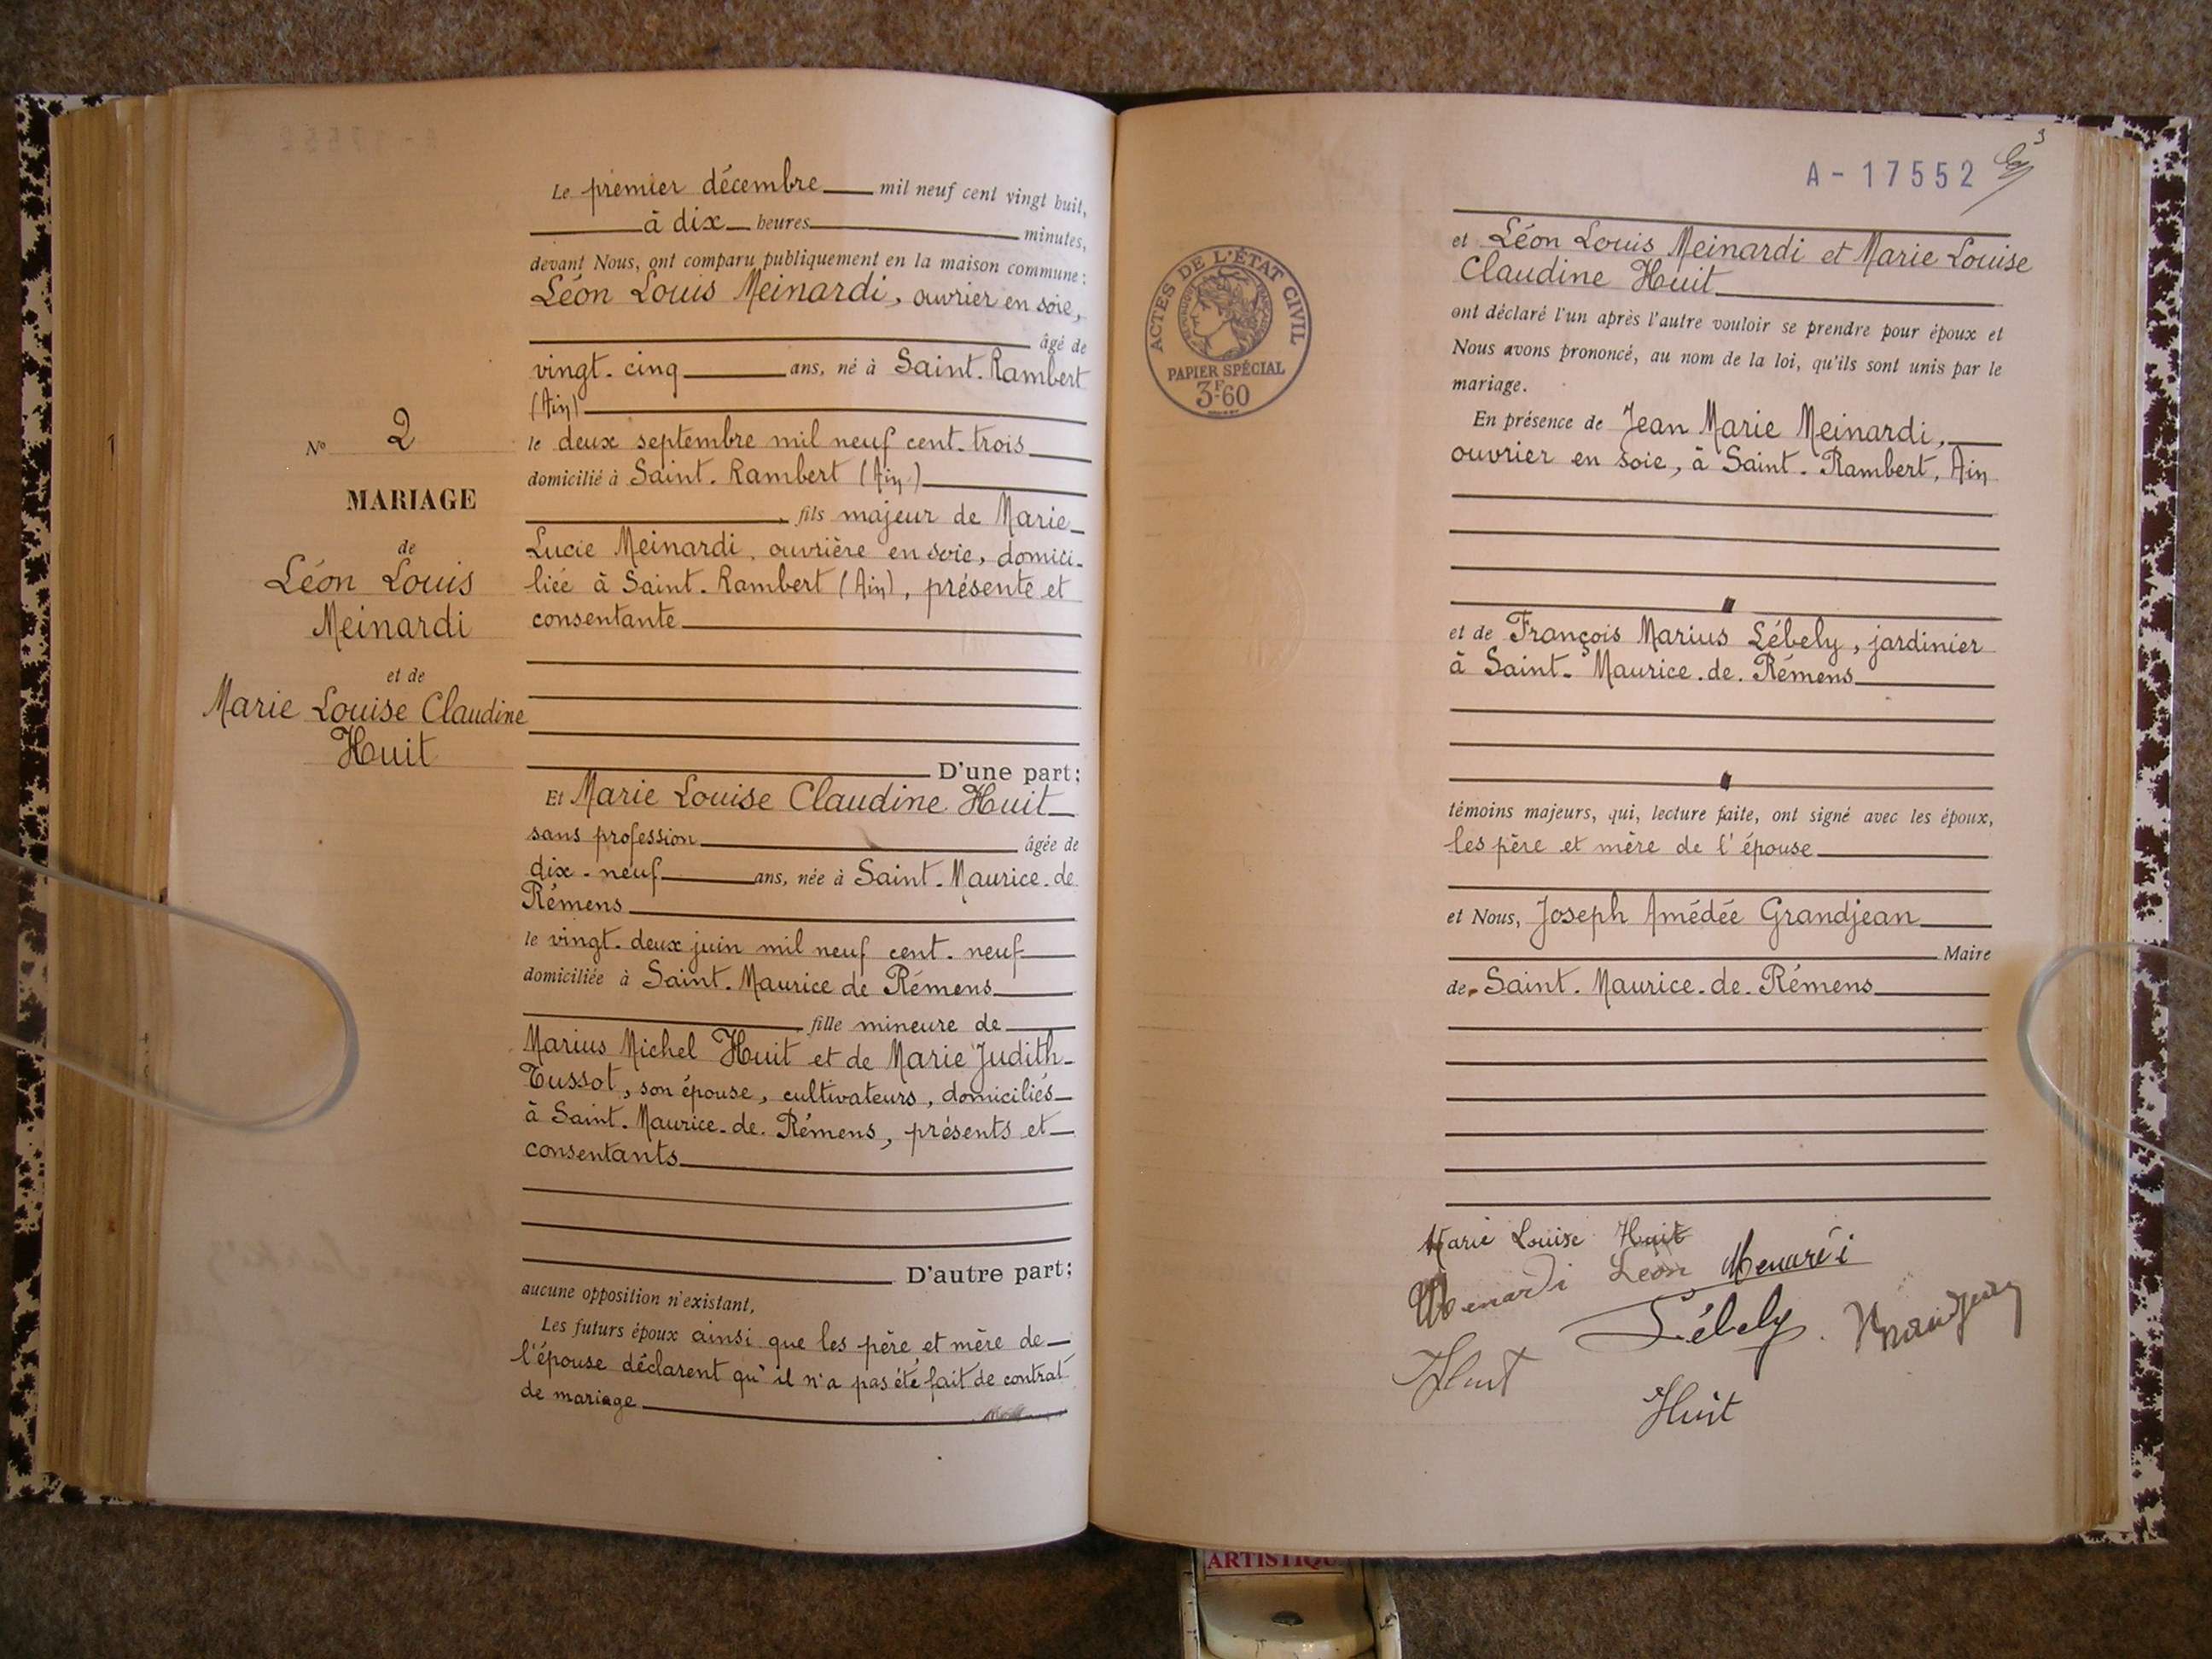 N° 2
MARIAGE
de
Léon Louis
Meinardi
et de
Marie Louise Claudine
Huit
Le premier décembre mil neuf cent vingt huit,
à dix heures minutes,
devant Nous, ont comparu publiquement en la maison commune :
Léon Louis Meinardi, ouvrier en soie,
âgé de
vingt-cinq ans, né à Saint-Rambert
(Ain)
le deux septembre mil neuf cent-trois
domicilié à Saint-Rambert (Ain)
fils majeur de Marie
Lucie Meinardi, ouvrière en soie, domici-
liée à Saint-Rambert (Ain), présente et
consentante
D'une part;
Et Marie Louise Claudine Huit
sans profession âgée de
dix-neuf ans, née à Saint-Maurice-de
Rémens
le vingt-deux juin mil neuf cent-neuf
domiciliée à Saint-Maurice de Rémens
fille mineure de
Marius Michel Huit et de Marie Judith
Tussot, son épouse, cultivateurs, domiciliés
à Saint-Maurice-de-Rémens, présents et
consentants
D'autre part;
aucune opposition n'existant,
Les futurs époux ainsi que les père et mère de
l'épouse déclarent qu'il n'a pas été fait de contrat
de mariage
3
A-17552
ACTES DE L'ÉTAT CIVIL
RÉPUBLIQUE FRANÇAISE
PAPIER SPÉCIAL
3F.60
et Léon Louis Meinardi et Marie Louise
Claudine Huit
ont déclaré l'un après l'autre vouloir se prendre pour époux et
Nous avons prononcé, au nom de la loi, qu'ils sont unis par le
mariage.
En présence de Jean Marie Meinardi,
ouvrier en soie, à Saint-Rambert, Ain
et de François Marius Lébely, jardinier
à Saint-Maurice-de-Rémens
témoins majeurs, qui, lecture faite, ont signé avec les époux,
les père et mère de l'épouse
et Nous, Joseph Amédée Grandjean
Maire
de Saint-Maurice-de-Rémens
Marie Louise Huit
Menardi Léon Menardi
Lébely Grandjean
Huit
Huit
ARTISTIQU